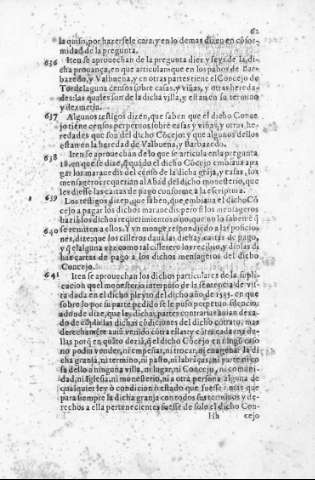 62
la quiso, por hazersele cara, y en lo demas dizen en cõfor-
midad de la pregunta.
636 Iten se aprouechan de la pregunta diez y seys de la, di-
cha prouança, en que articulan que en los pagos de Barc
baredo, y Valbuena, y en otras partes tiene el Concejo de
Tordelaguna censos sobre casas, y viñas, y otras hereda-
des: las quales son de la dicha villa, y estan en su termino
y dezmeria.
637 Algunos testigos dizen, que saben que el dicho Conce
jo tiene censos perpetuos sobre casas y viñas, y otras, he-
redades que son del dicho Cõcejo: y que algunos dellos
estan en la heredad de Valbuena, y Barbaredo.
638 Iten se aprouechan de lo que se articula en la pregunta
18. en que se dize, que quãdo el dicho Cõcejo embiaua a pa-
gar los marauedis del censo de la dicha grãja, y casas, los
mensageros requerian al Abad del dicho monesterio, que
les diesse las cartas de pago conforme a la escriptura.
639 Los testigos dizen, que saben, que embiaua el dicho Cõ
cejo a pagar los dichos marauedis: pero si los mensageros
hariã los dichos requerimientos o no, que no lo saben: e q̃
640 se remiten a ellos. Y vn monge respondiedo a las posicio-
nes, dize: que los cilleros dauã las dichas cartas de pago,
y q̃ el alguna vez como tal cillerero los recibio, y dio las di
has cartas de pago a los dichos mensageros del dicho
Concejo.
641 Iten se aprouechan los dichos particulares de la supli-
cacion que el monesterio interpuso de la sentencia de vis-
ta dada en el dicho pleyto del dicho año de 1535. en que
sobre lo por su parte pedido se le puso perpetuo silencio,
adonde dize, que los dichas partes contratantes auian dexa-
do de cõplir las dichas cõdiciones del dicho cõtrato, mas
derechamente auiã venido cõtra ellas y cõtra cada vna de-
llas porq̃ en quãto dezia, q̃ el dicho Cõcejo en ningũ caso
no podia vender, ni empeñar, ni trocar, ni enagenar la di
cha granja, ni termino, ni pasto, ni labrãças, ni parte ningu
sa dello a ninguna villa, ni lugar, ni Concejo, ni comuni-
dad, ni Iglesia, ni monesterio, ni a otra persona alguna de
qualquier ley o condicion he stado que fuesse: mas que
para siempre la dicha granja con todos sus terminos y de-
rechos a ella pertenecientes fuesse de solo el dicho Con-
Hh cejo